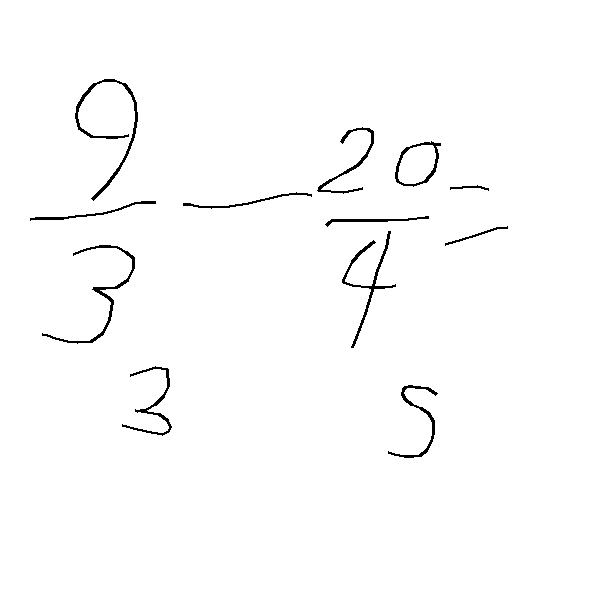 9/3 - 20/4 =
3 5